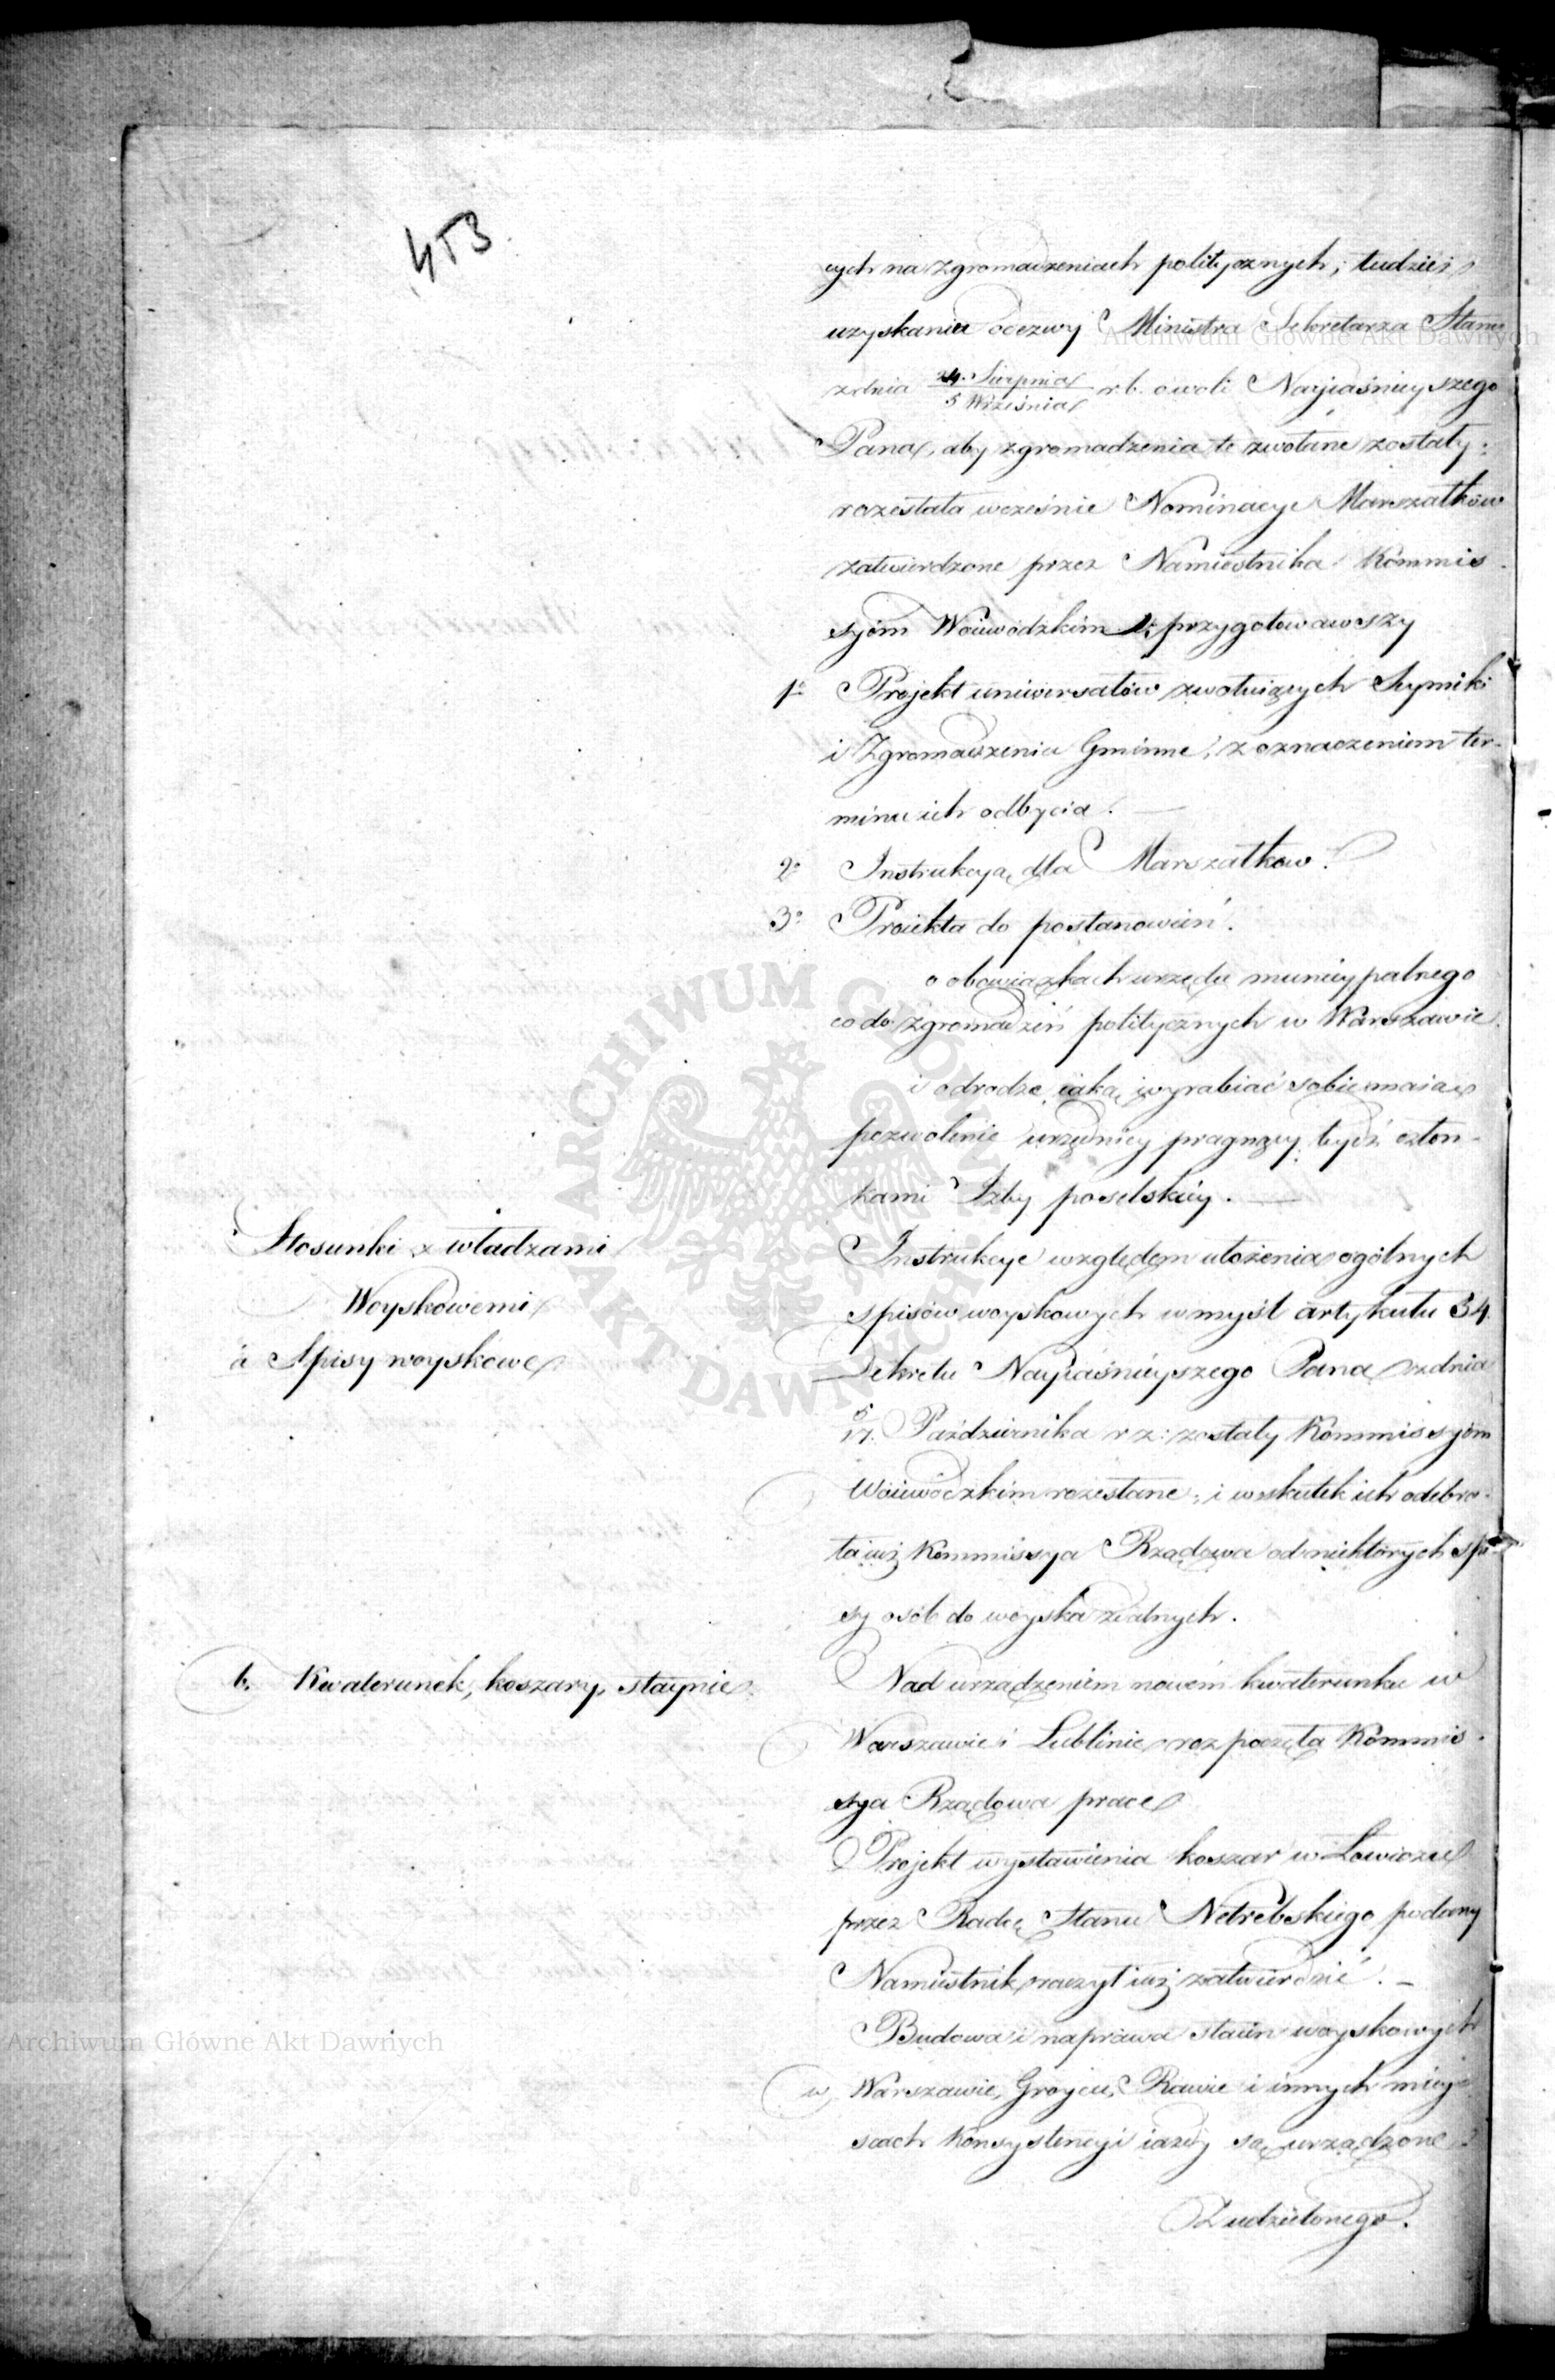 453
cych na zgromadzeniach politycznych, tudzież
uzyskaniu odezwy Ministra Sekretarza Stanu
z dnia 24. Sierpnia / 5 Września r. b. o woli Nayiaśnieyszego
Pana, aby zgromadzenia te zwołane zostały;
rozesłała wcześnie Nominacye Marszałków
zatwierdzone przez Namiestnika Kommis-
syiom Woiewódzkim; przygotowawszy
1º Projekt uniwersałów zwołuiących Seymiki
i Zgromadzenia Gminne, z oznaczeniem ter-
minu ich odbycia. —
2º Instrukcyą dla Marszałkow.
3º Proiekta do postanowień.
o obowiązkach urzędu municypalnego
co do zgromadzeń politycznych w Warszawie
i o drodze, iaką wyrabiać sobie maią
pozwolenie urzędnicy pragnący bydź człon-
kami Izby poselskiey. —
Stosunki z władzami
Woyskowemi
a Spisy woyskowe
Instrukcye względem ułożenia ogólnych
spisów woyskowych w myśl artykułu 34
Dekretu Nayiaśnieyszego Pana z dnia
5/17. Października r z: zostały Kommissyóm
Woiewódzkim rozesłane; i w skutek ich odebra-
ła iuż Kommissya Rządowa od niektórych spi-
sy osób do woyska zdalnych.
b. Kwaterunek, koszary, staynie
Nad urządzeniem nowém kwaterunku w
Warszawie i Lublinie rozpoczęła Kommis-
sya Rządowa prace
Projekt wystawienia koszar w Łowiczu
przez Radcę Stanu Netrebskiego podany
Namiestnik raczył iuż zatwierdzić. —
Budowa i naprawa stain woyskowych
w Warszawie, Groycu, Rawie i innych miey-
scach Konsystencyi iazdy są urządzone.
Z udzielonego.
Archiwum Główne Akt Dawnych
Archiwum Główne Akt Dawnych
ARCHIWUM GŁÓWNE AKT DAWNYCH